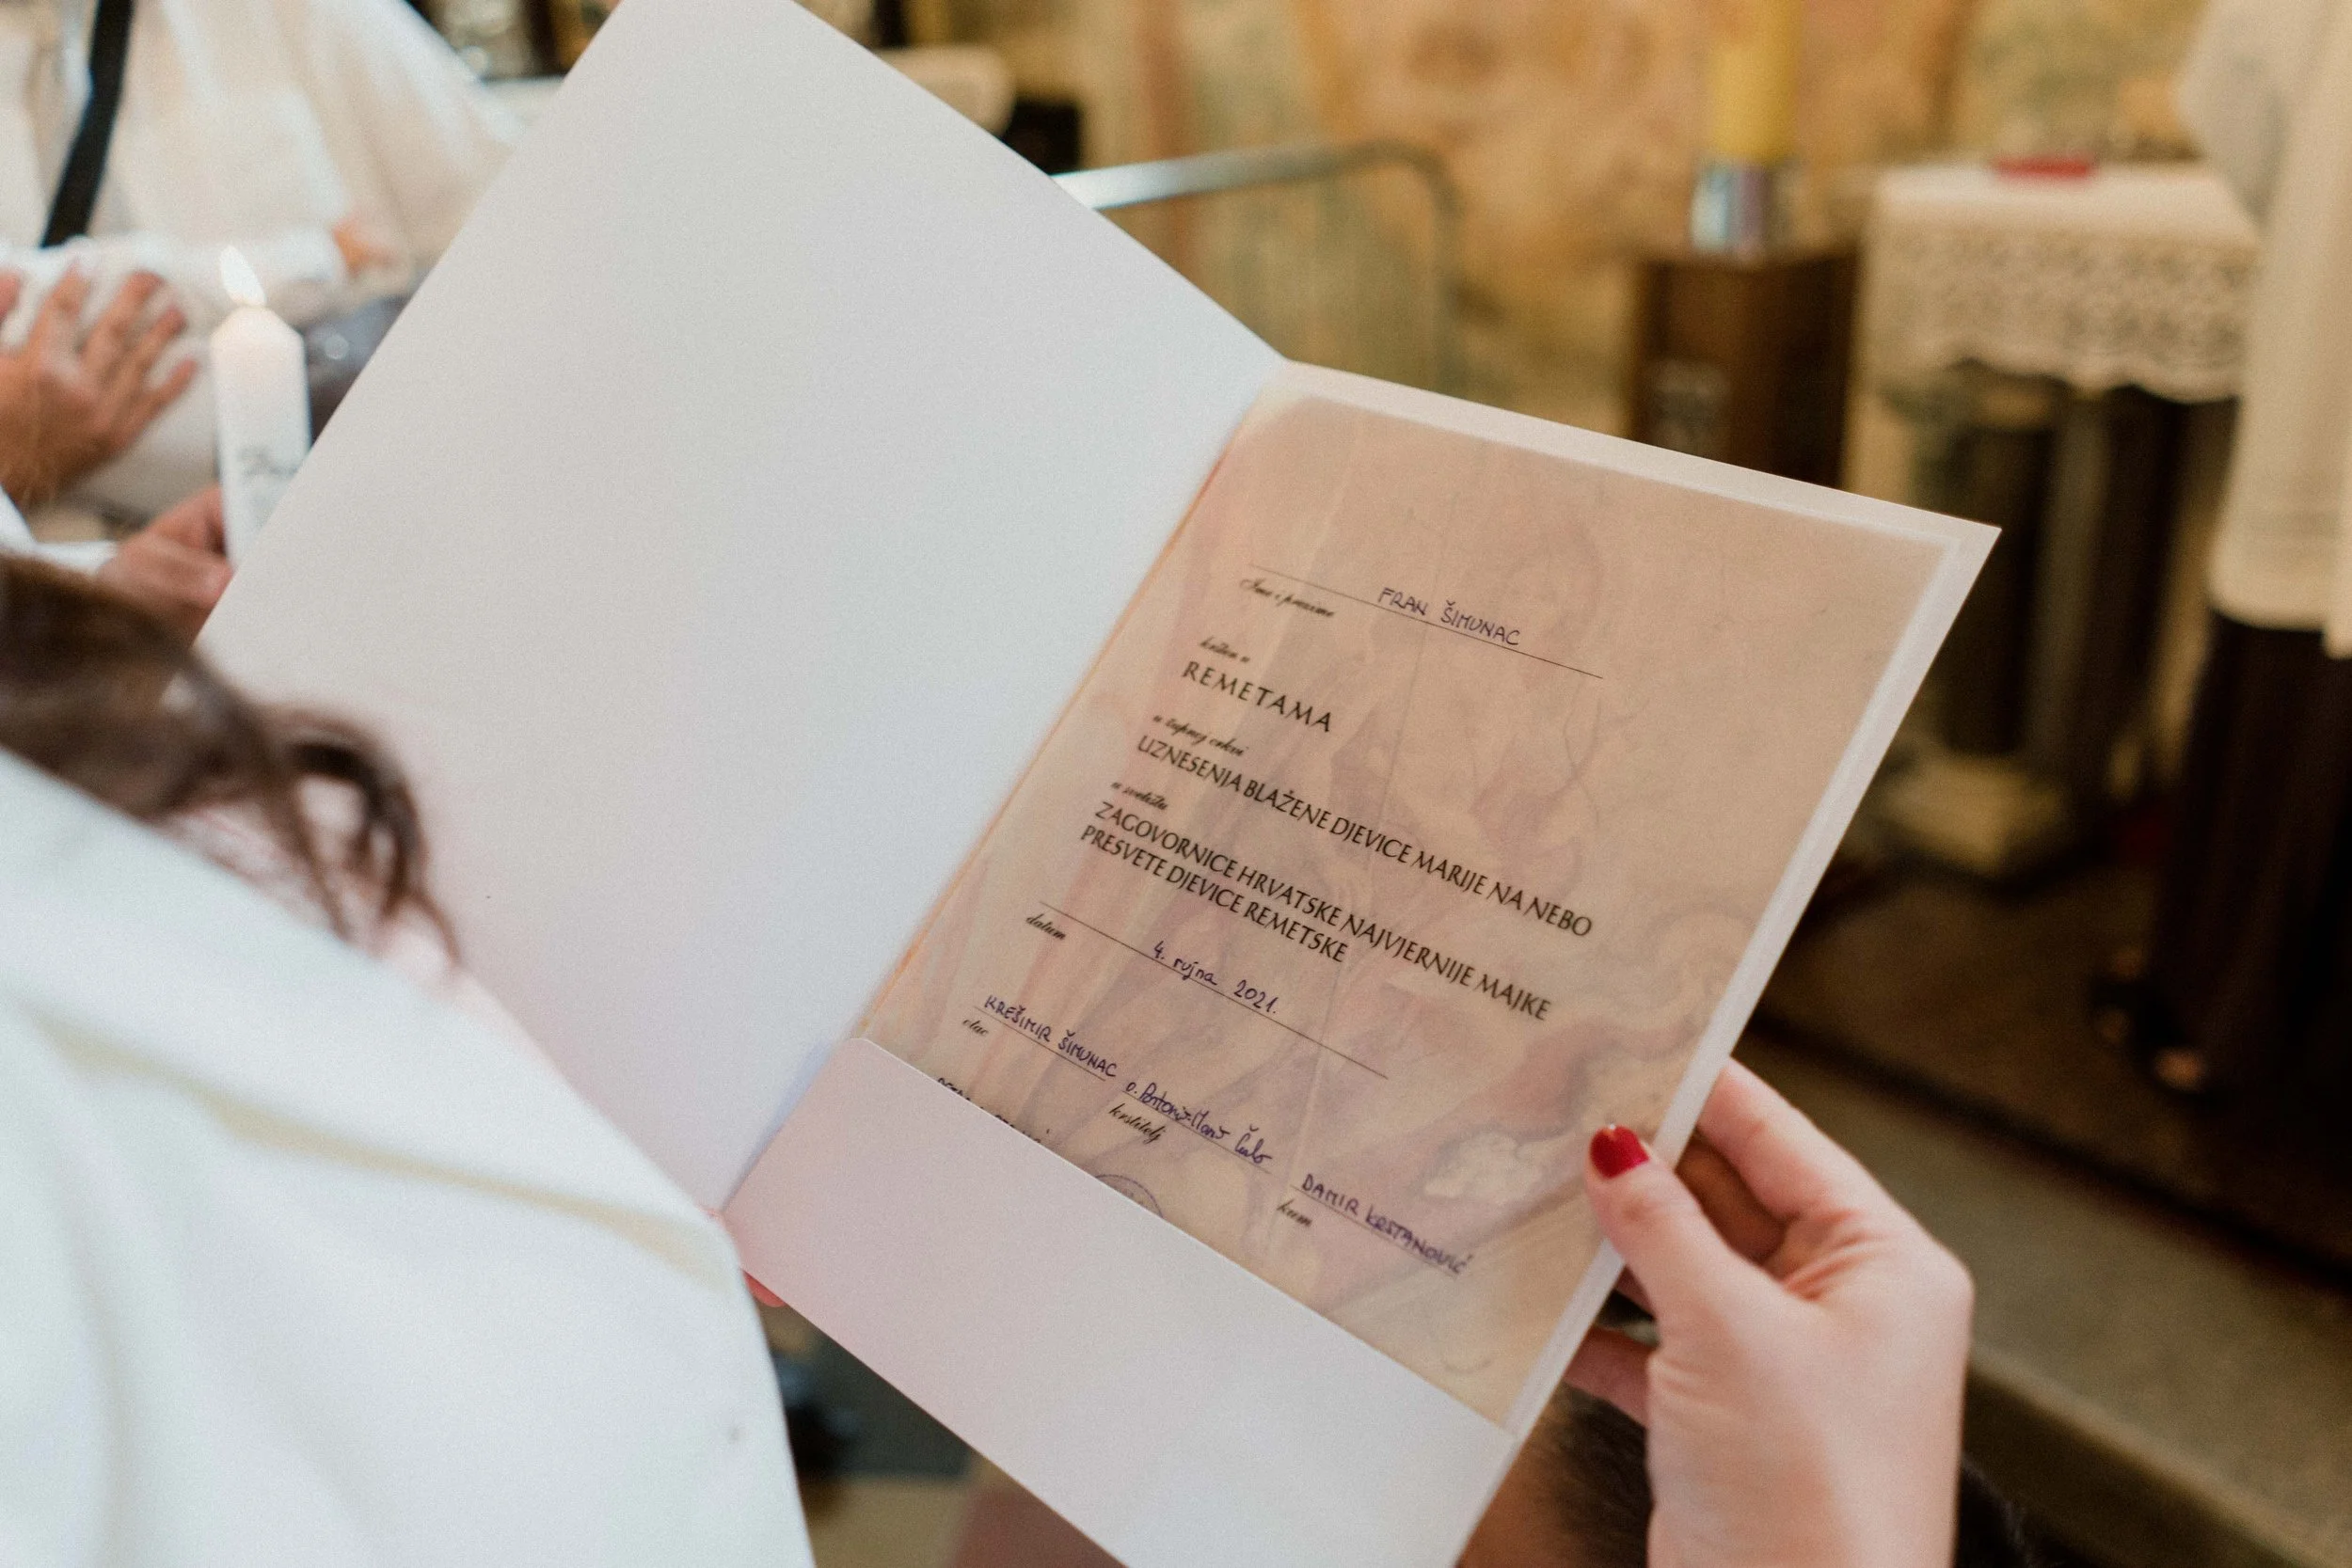 FRAN ŠIMUNAC
Ime i prezime
kršten u
REMETAMA
u župnoj crkvi
UZNESENJA BLAŽENE DJEVICE MARIJE NA NEBO
u svetištu
ZAGOVORNICE HRVATSKE NAJVJERNIJE MAJKE
PRESVETE DJEVICE REMETSKE
4. rujna 2021.
datum
KREŠIMIR ŠIMUNAC
otac
o.
krstitelj
DAMIR KRSTANOVIĆ
kum